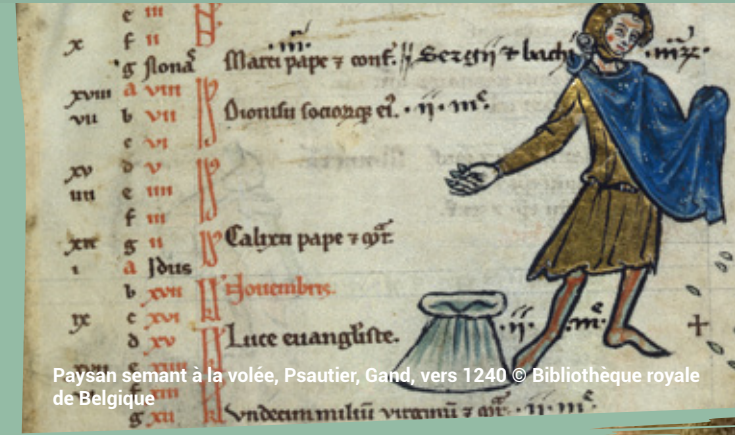 e iii
x f ii
g Nonaꝫ Marci pape ⁊ conf. Sergii ⁊ bachi
xviii a viii
vii b vii Dionisii sociorꝙ ei⁹. · ii · mꝫ.
c vi
xv d v
iiii e iiii
f iii
xii g ii Calixti pape ⁊ mr̄.
i a Idus
b xvii Nouembris.
ix c xvi · ii · m̄.
d xv Luce euangliste.
g xii Vndecim miliū virginū ⁊ mr̄. · ii · m
Paysan semant à la volée, Psautier, Gand, vers 1240 © Bibliothèque royale
de Belgique